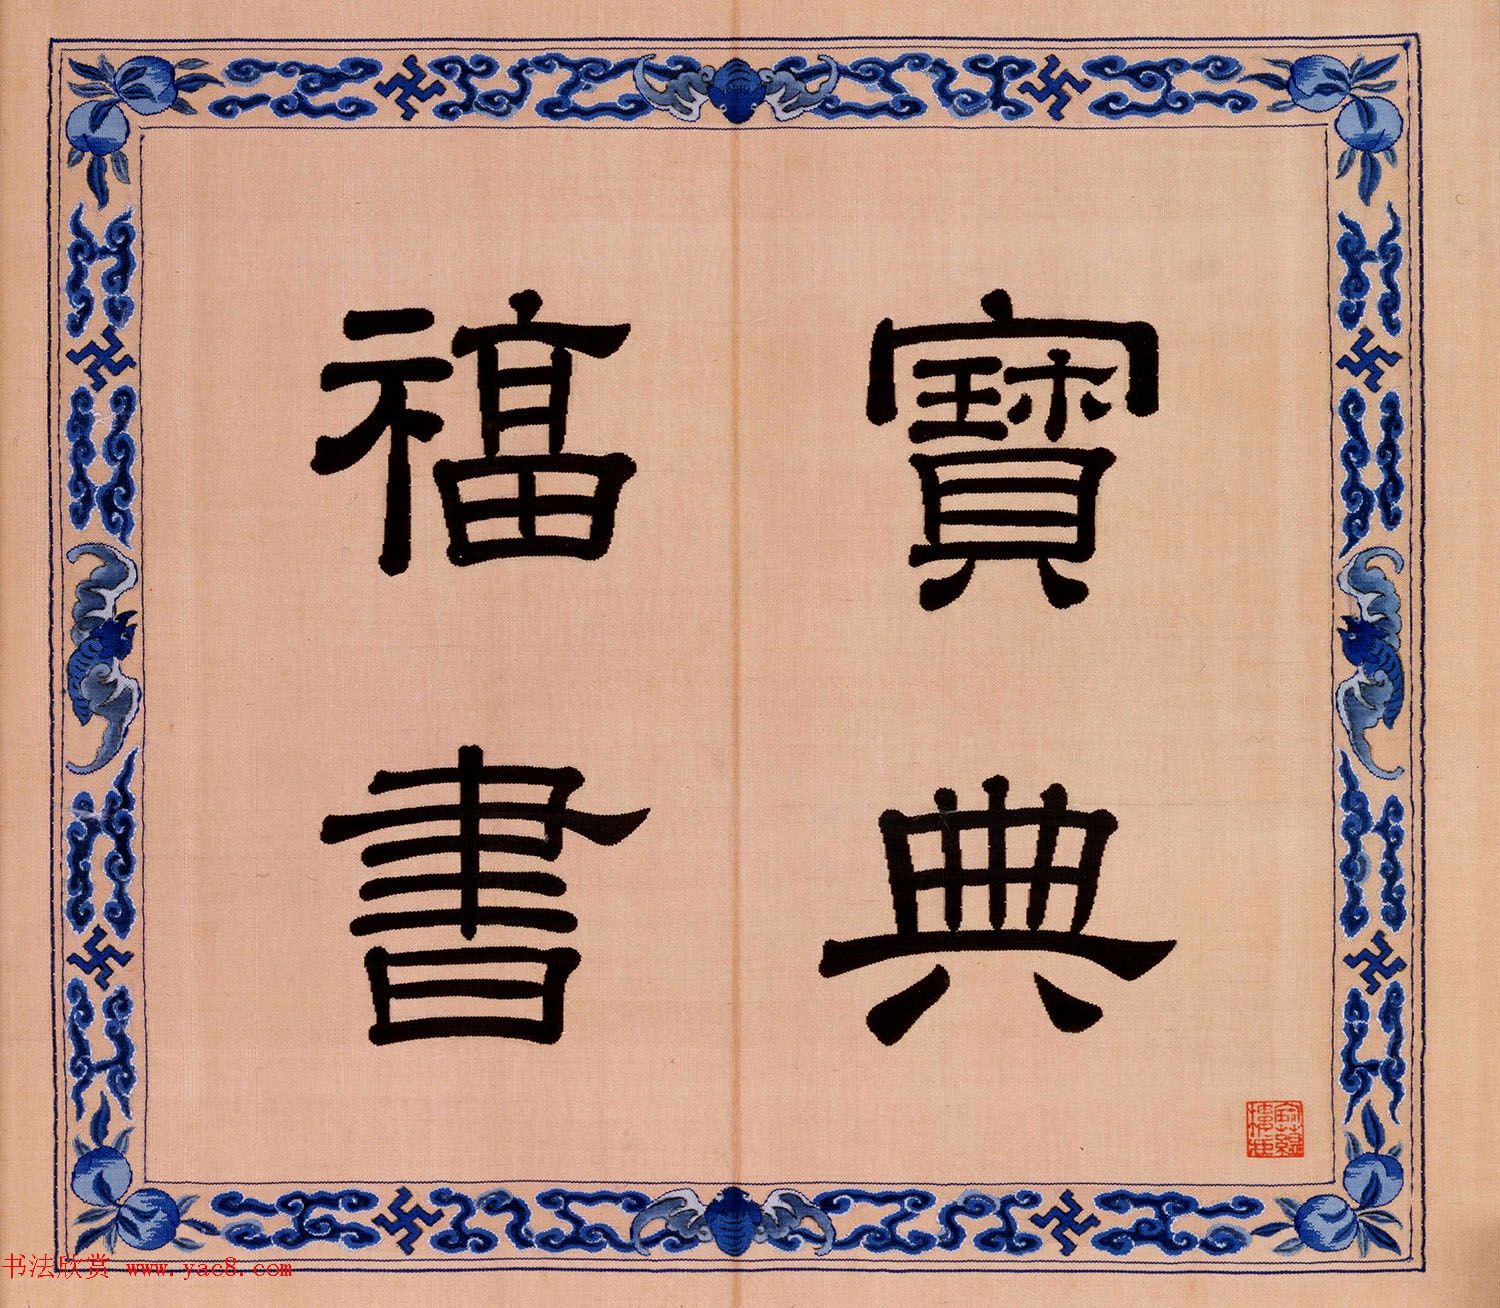 寶典
福書
书法欣赏 www.yac8.com